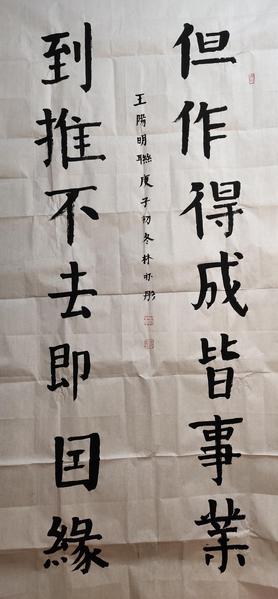 但作得成皆事業
到推不去即囙緣
王陽明聯庚子初冬林亦彤